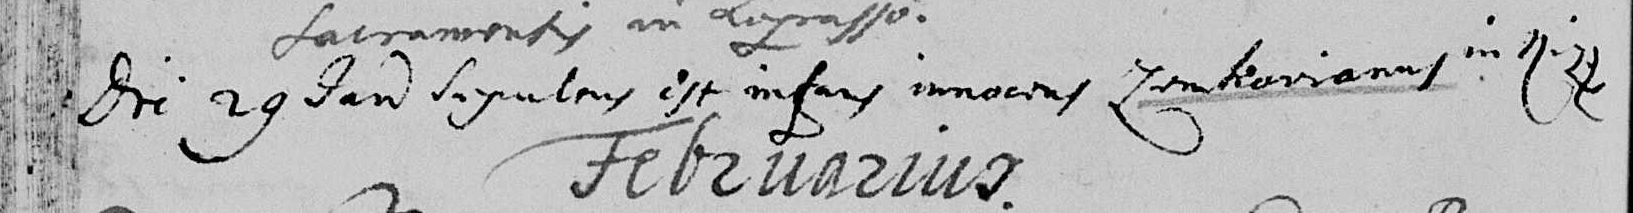 Sacramentis in Lograsso.
Dei 29 Jan Sepultus est infans innocens Zemkovianus in
Februarius.